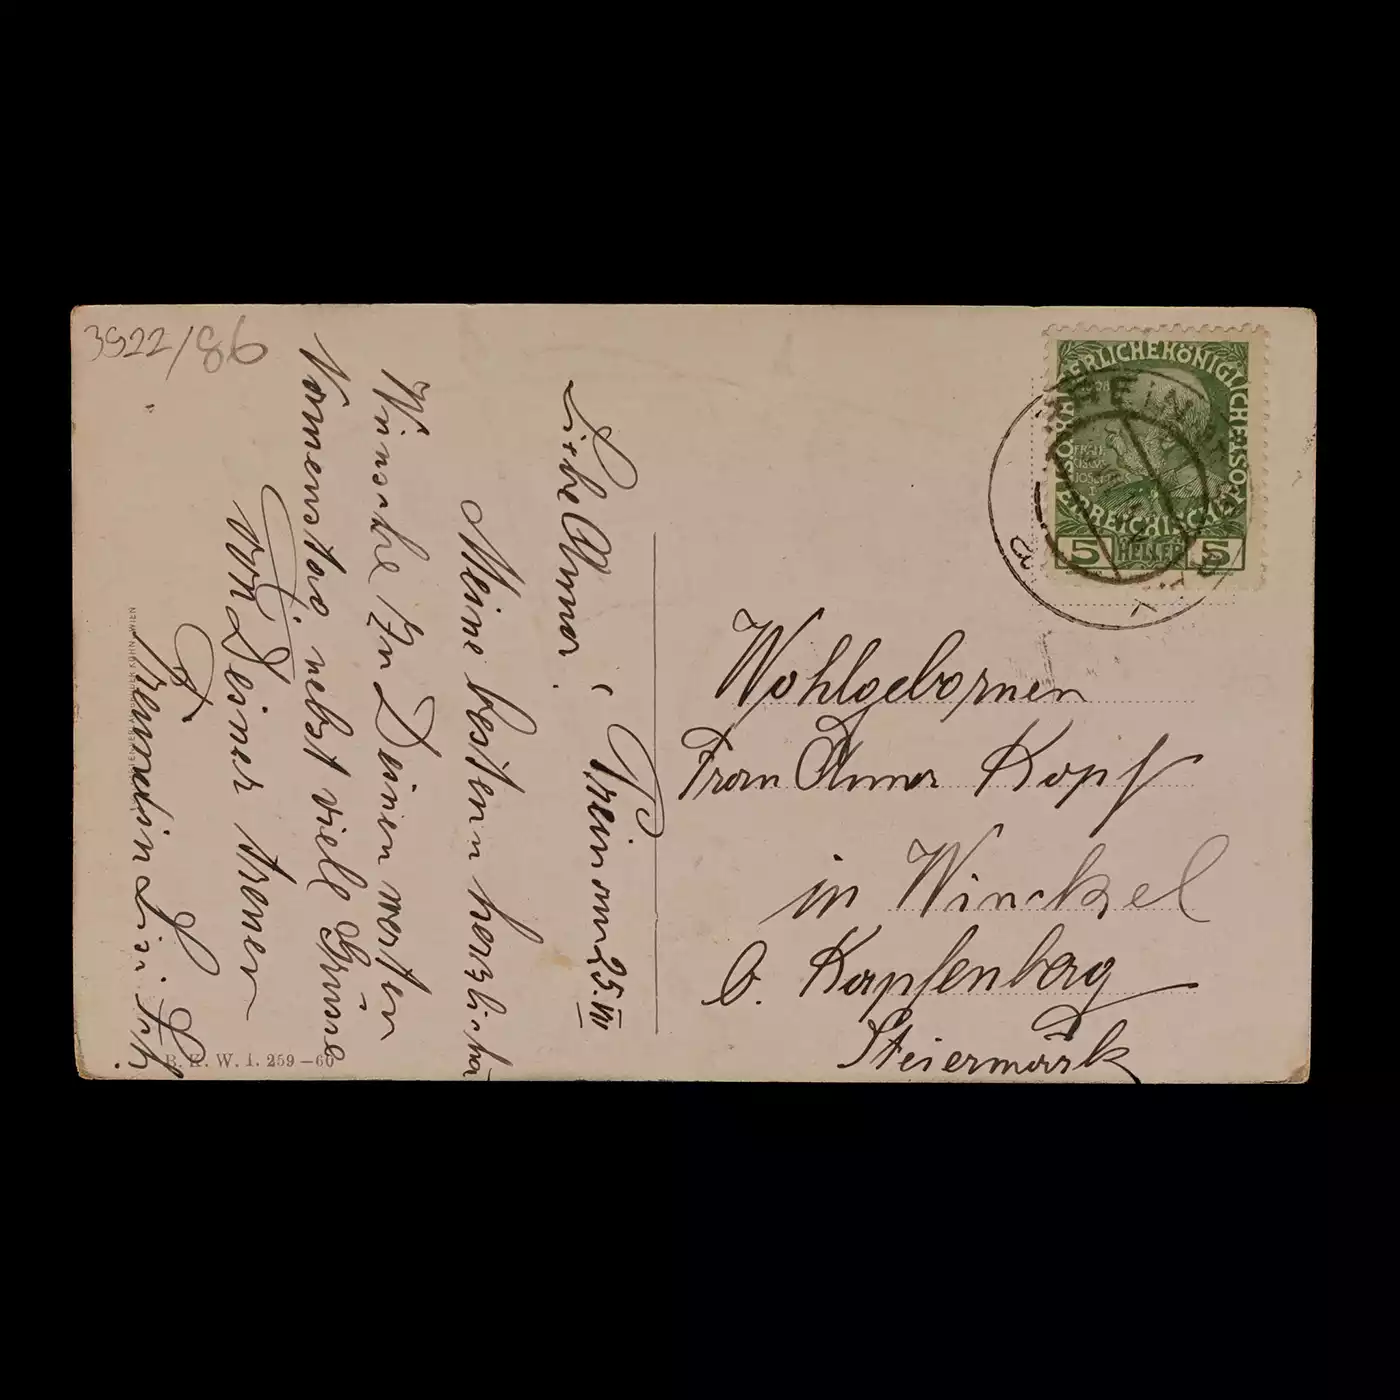 3922/86
Liebe Anna!
Prein am 25. VII
Meine besten herzlichen
Wünsche zu Deinen werten
Namenstag nebst viele Grüsse
von Deiner treuen
Freundin
B.K.W.I. 259-60
KAISERLICHE KÖNIGLICHE ÖSTERREICHISCHE
5 HELLER 5
Wohlgebornen
Frau Anna Kopf
in Winckel
b. Kapfenberg
Steiermark